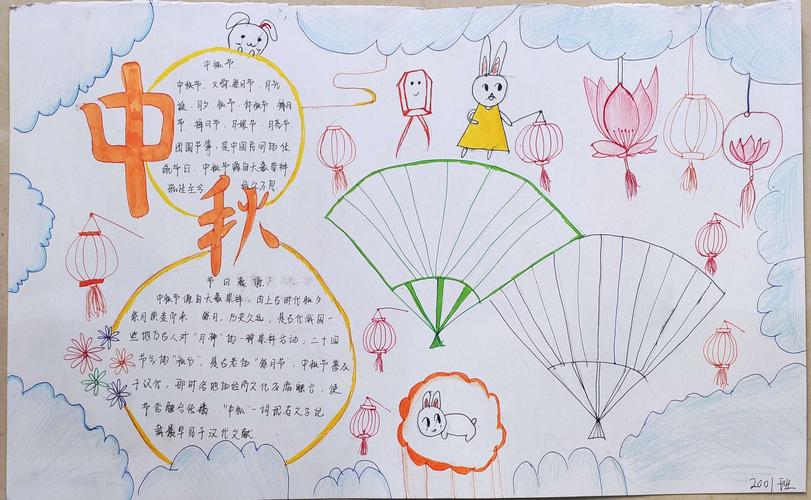 中秋
中秋节
中秋节，又称祭月节、月光
诞、月夕、秋节、仲秋节、拜月
节、月娘节、月亮节、
团圆节等，是中国民间的传
统节日。中秋节源自天象崇拜
节日起源
中秋节源自天象崇拜，由上古时代秋夕
祭月演变而来。祭月，历史久远，是古代我国一
些地方古人对“月神”的一种崇拜活动，二十四
节气的“秋分”，是古老的“祭月节”。中秋节普及
于汉代，那时各地的经济文化交流融合，使
节俗融合传播，“中秋”一词现存文字记
载最早见于汉代文献
2001班